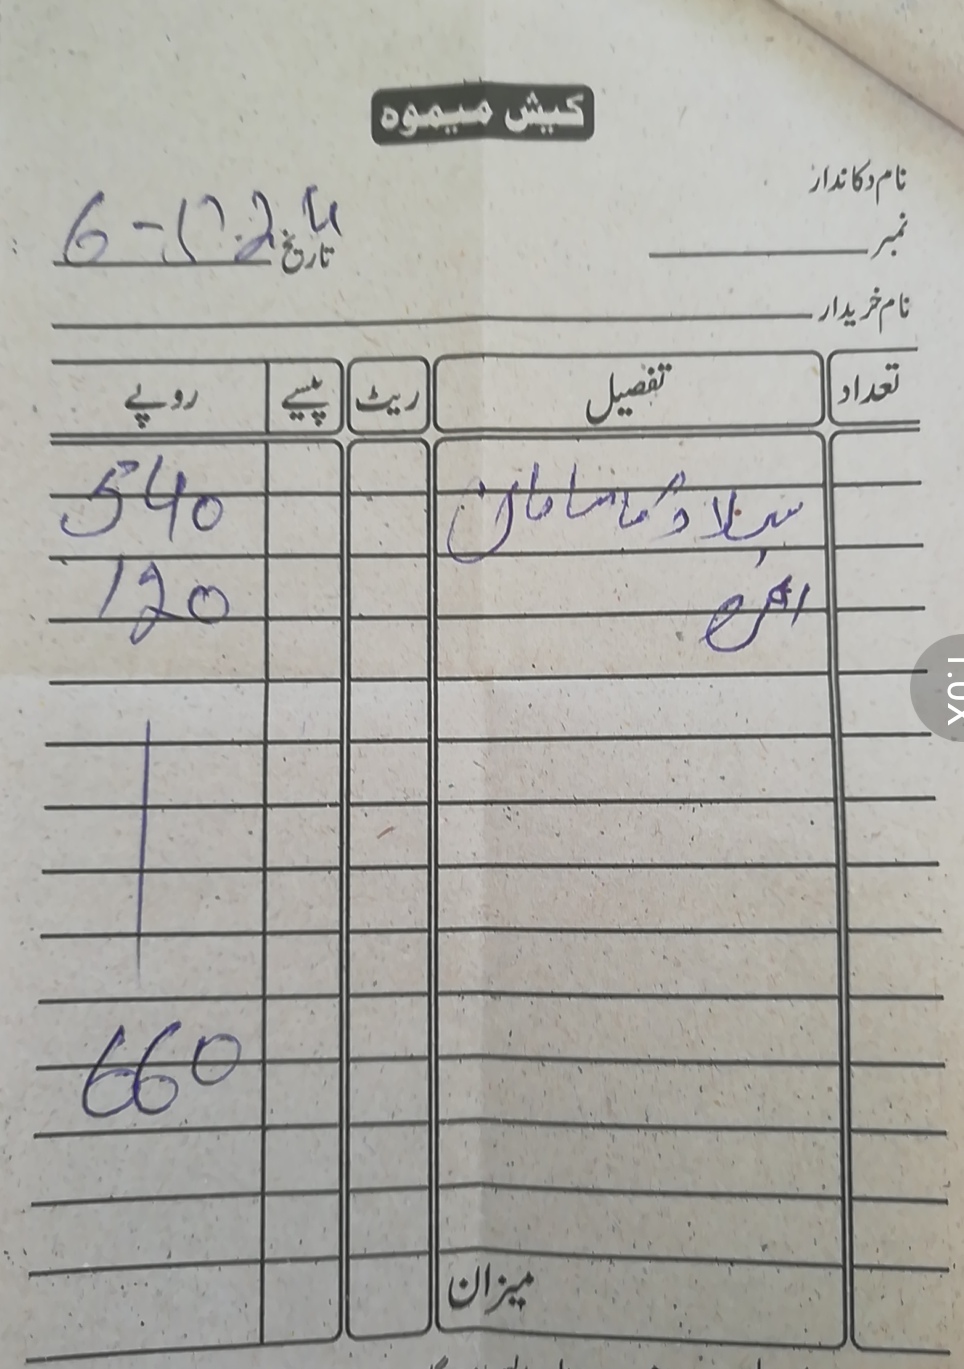 کیش میموہ
نام دکاندار
نمبر
تاریخ 6-12-24
نام خریدار
تعداد تفصیل ریٹ پیسے روپے
سلاد کا سامان 540
120
660
میزان
1.0X